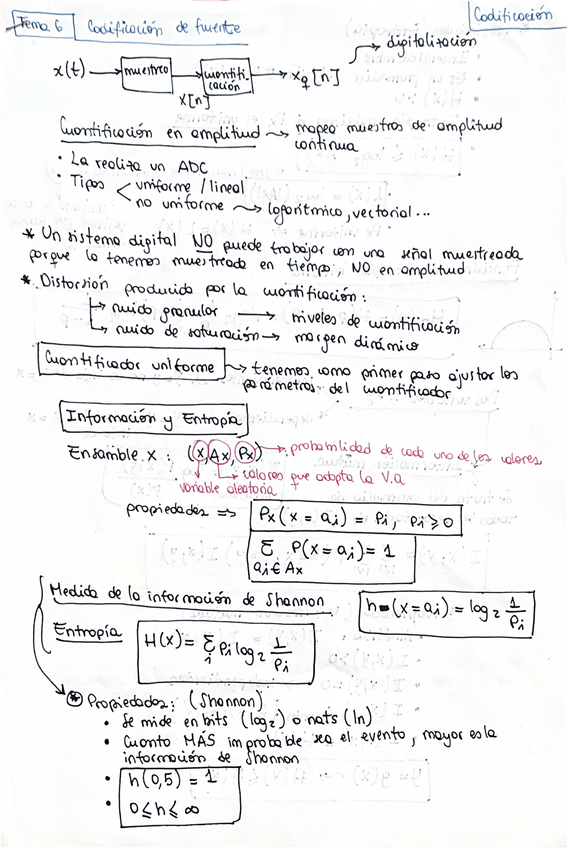 Tema 6 Codificación de fuente
Codificación
x(t) → muestreo → cuantificación → xq[n]
digitalización
x[n]
Cuantificación en amplitud ⤳ mapeo muestras de amplitud
continua
• La realiza un ADC
• Tipos < uniforme / lineal
no uniforme ⤳ logarítmico, vectorial ...
* Un sistema digital NO puede trabajar con una señal muestreada
porque la tenemos muestreada en tiempo, NO en amplitud
* Distorsión producida por la cuantificación:
↳ ruido granular → niveles de cuantificación
↳ ruido de saturación → margen dinámico
Cuantificador uniforme ⤳ tenemos como primer paso ajustar los
parámetros del cuantificador
Información y Entropía
Ensamble X : (x, Ax, Px) → probabilidad de cada uno de los valores
↳ valores que adopta la V.a
variable aleatoria
propiedades => Px(x = ai) = Pi, Pi ≥ 0
Σ P(x = ai) = 1
ai ∈ Ax
Medida de la información de Shannon
h (x = ai) = log2 1/Pi
Entropía H(x) = Σi Pi log2 1/Pi
* Propiedades: (Shannon)
• Se mide en bits (log2) o nats (ln)
• Cuanto MÁS improbable sea el evento, mayor es la
información de Shannon
• h(0,5) = 1
• 0 ≤ h ≤ ∞